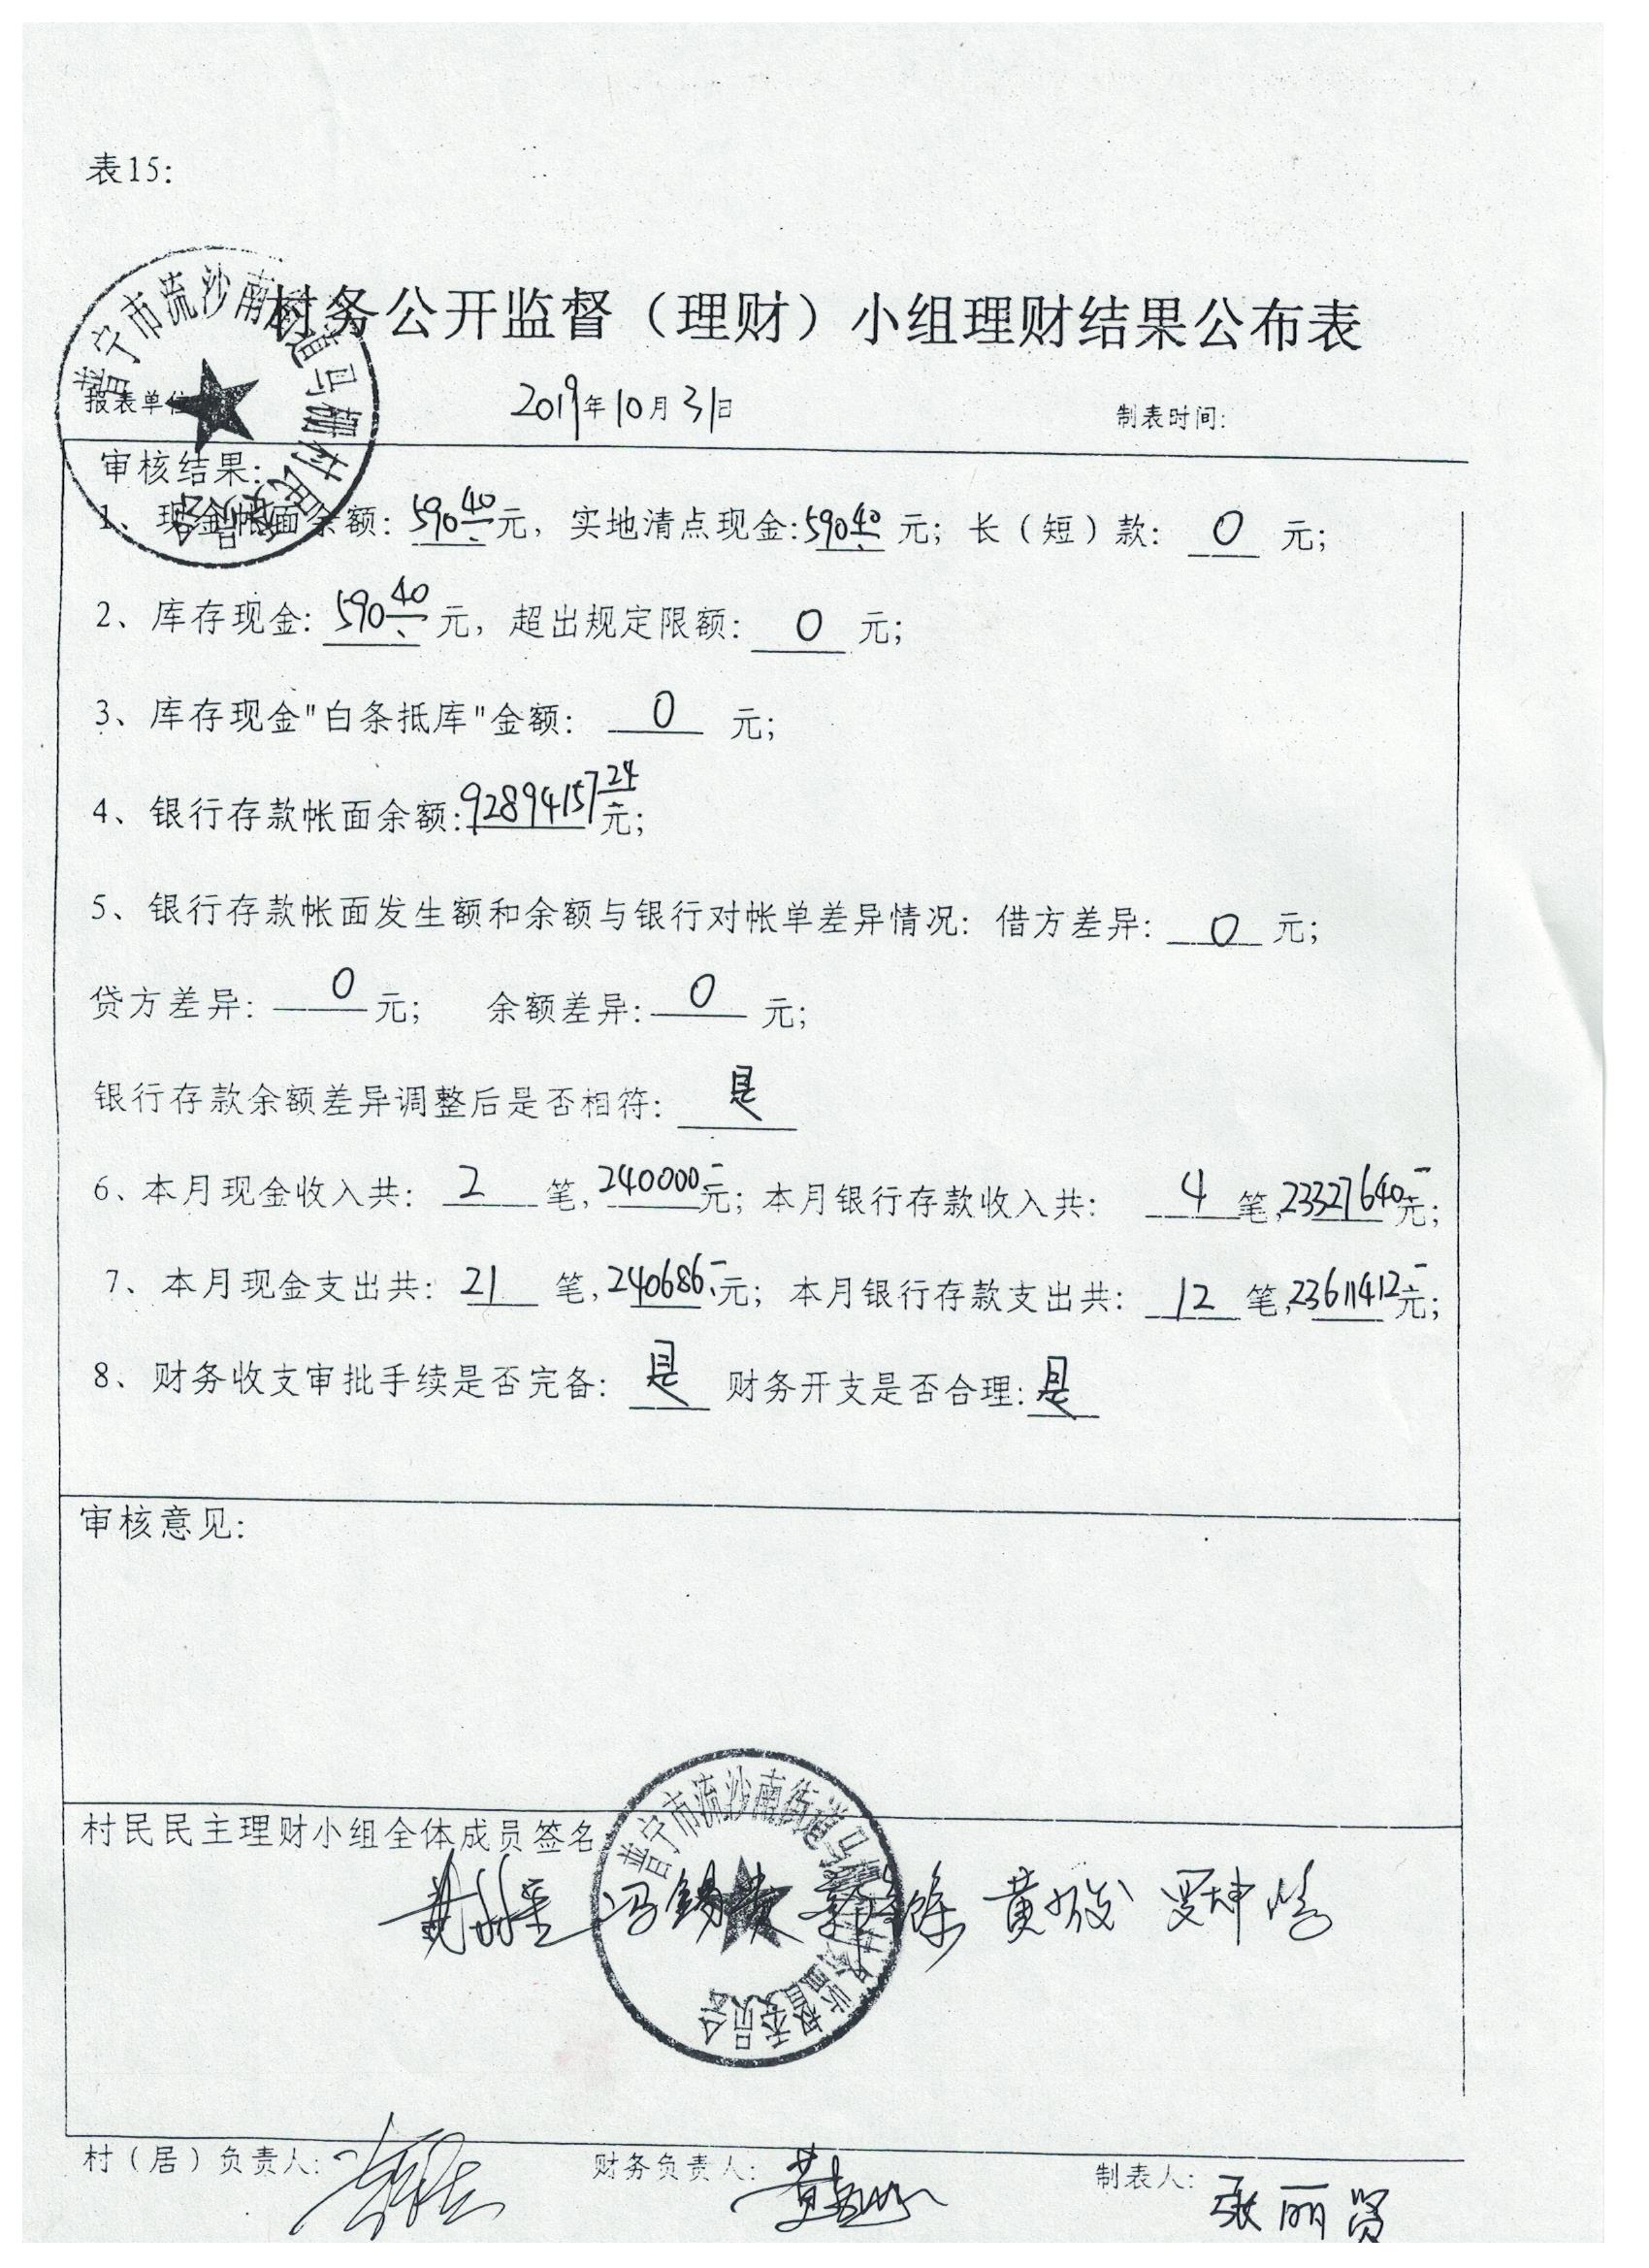 表15:
村务公开监督（理财）小组理财结果公布表
普宁市流沙南街道马栅村民委员会
报表单位 2019年10月31日 制表时间:
审核结果:
1、现金帐面余额: 590.40元, 实地清点现金:590.40元; 长（短）款: 0 元;
2、库存现金: 590.40元, 超出规定限额: 0 元;
3、库存现金"白条抵库"金额: 0 元;
4、银行存款帐面余额:92894157.24元;
5、银行存款帐面发生额和余额与银行对帐单差异情况: 借方差异: 0 元;
贷方差异: 0 元; 余额差异: 0 元;
银行存款余额差异调整后是否相符: 是
6、本月现金收入共: 2 笔, 240000元; 本月银行存款收入共: 4 笔,23327640元;
7、本月现金支出共: 21 笔,240686元; 本月银行存款支出共: 12 笔,23611412元;
8、财务收支审批手续是否完备: 是 财务开支是否合理:是
审核意见:
村民民主理财小组全体成员签名
普宁市流沙南街道马栅村务监督委员会
村（居）负责人: 财务负责人: 制表人: 张丽贤